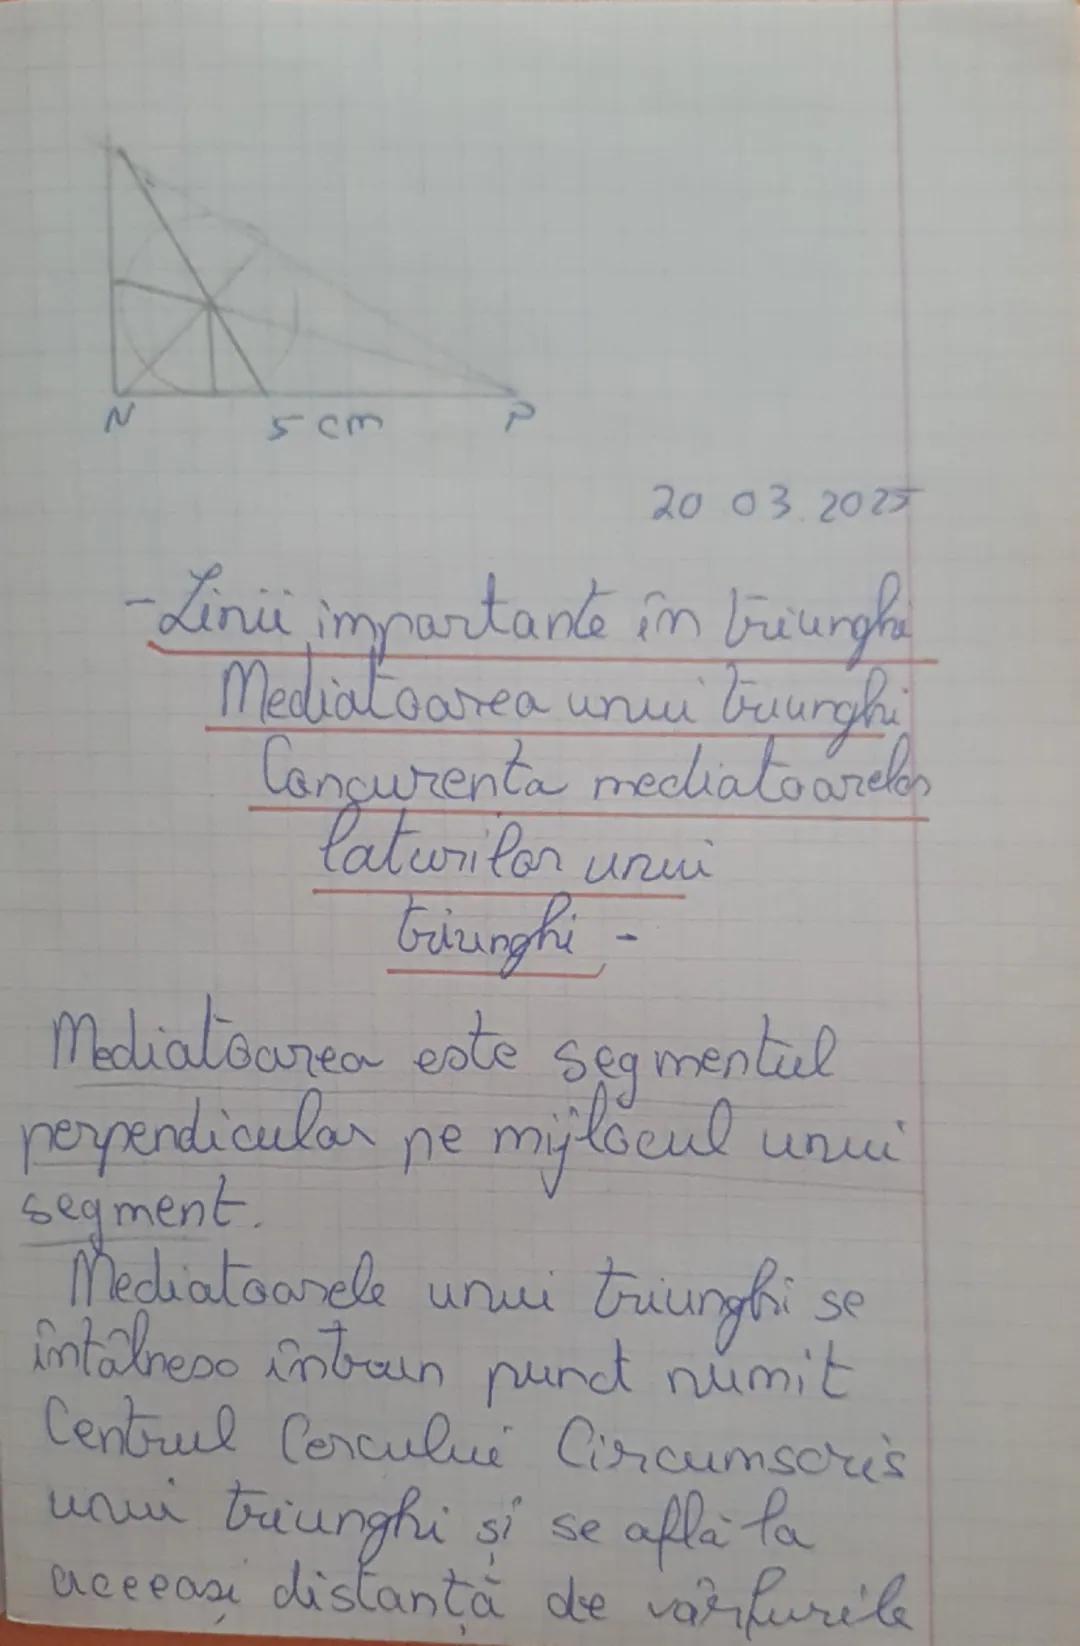 N 5 cm P
20 03.2025
-Linii importante în triunghi
Mediatoarea unui triunghi
Concurenta mediatoarelor
laturilor unui
triunghi -
Mediatoarea este segmentul
perpendicular pe mijlocul unui
segment.
Mediatoarele unui triunghi se
întâlnesc întrun punct numit
Centrul Cercului Circumscris
unui triunghi și se află la
aceeași distanță de vârfurile